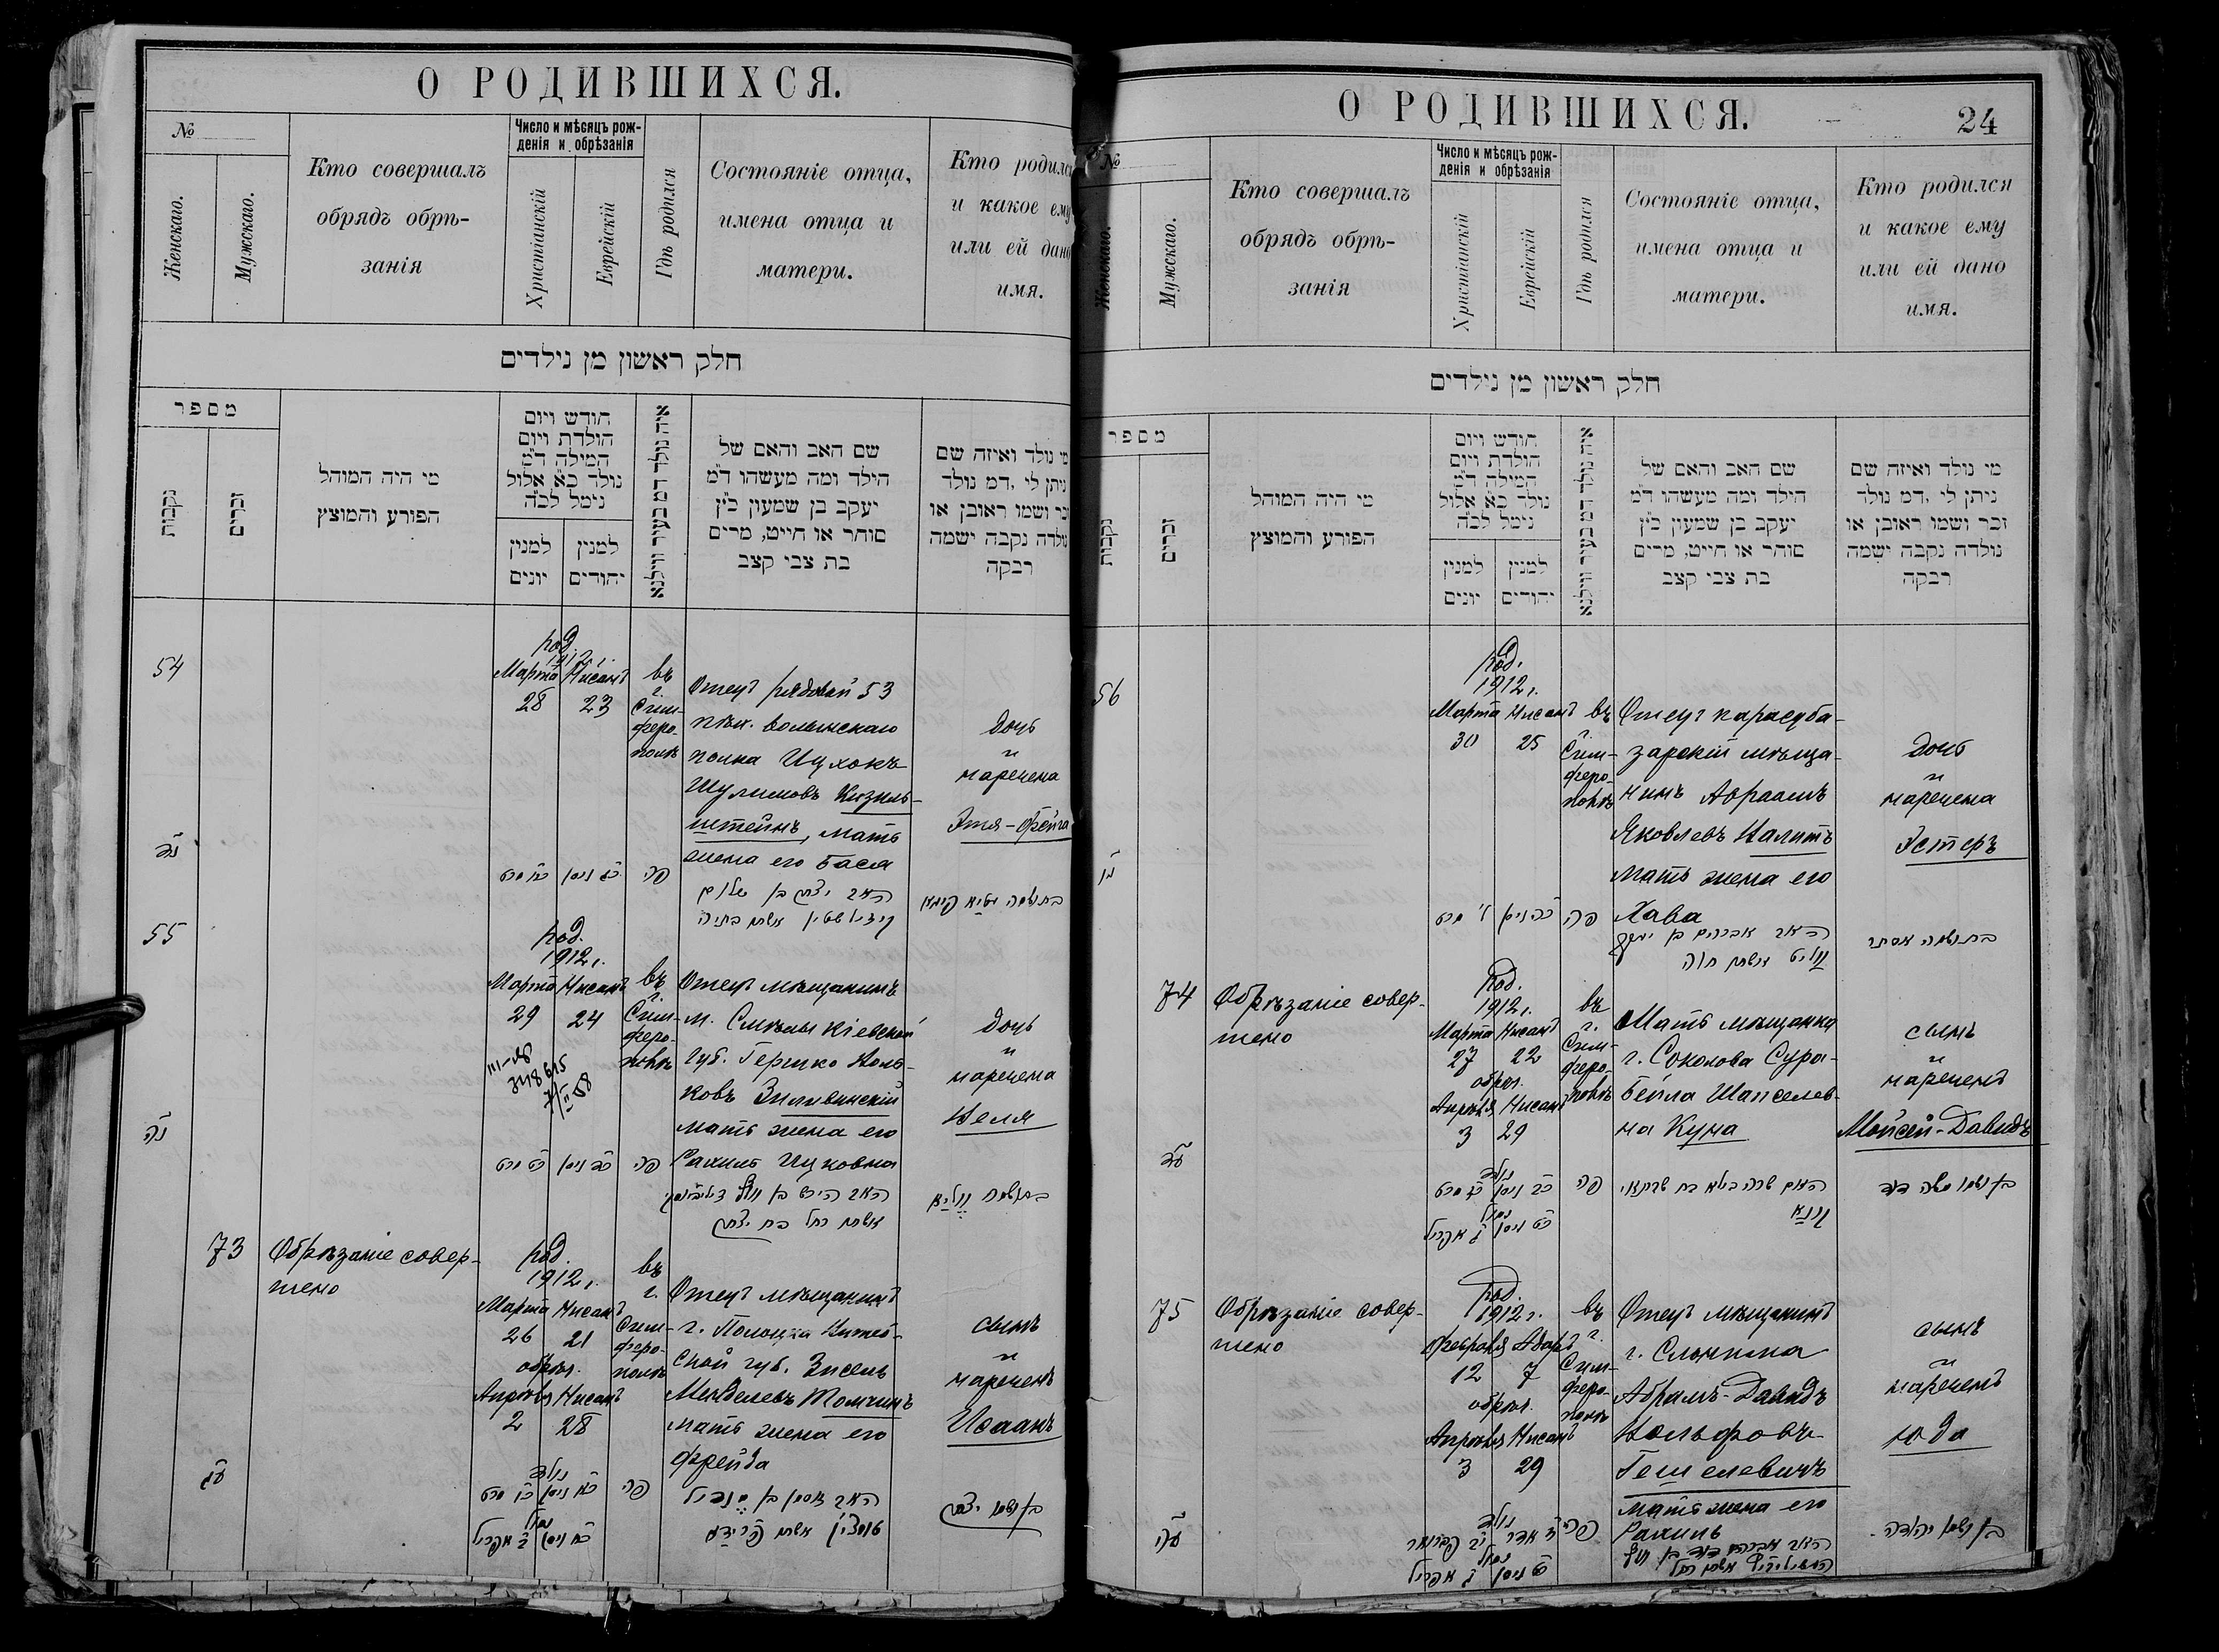 О РОДИВШИХСЯ.
№
Женскаго.
Мужскаго.
Кто совершалъ
обрядъ обрѣ-
занія
Число и мѣсяцъ рож-
денія и обрѣзанія
Христіанскій
Еврейскій
Гдѣ родился
Состояніе отца,
имена отца и
матери.
Кто родился
и какое ему
или ей дано
имя.
חלק ראשון מן נילדים
מספר
נקבות
זכרים
מי היה המוהל
הפורע והמוצץ
חודש ויום
הולדת ויום
המילה ד״מ
נולד כ״א אלול
נימל לכ״ה
למנין יונים
למנין יהודים
איה נולד דמ בעיר ווילנא
שם האב והאם של
הילד ומה מעשהו ד״מ
יעקב בן שמעון כ״ץ
סוחר או חייט, מרים
בת צבי קצב
מי נולד ואיזה שם
ניתן לי ,דמ נולד
זכר ושמו ראובן או
נולדה נקבה ישמה
רבקה
54
род.
1912 г.
Марта Нисанъ
28 23
въ
г.
Сим-
феро-
полѣ
Отецъ рядовой 53
пѣх. волынскаго
полка Ицхокъ
Шулимовъ Кизиль-
штейнъ, мать
жена его Бася
Дочь
и
наречена
Этя-Фейга
נד
כ״ג ניסן
פה
האב יצחק בן שלום
קיזילשטיין אשתו בתיה
55
род.
1912 г.
Марта Нисанъ
29 24
въ
г.
Сим-
феро-
полѣ
Отецъ мѣщанинъ
м. Смѣлы Кіевской
губ. Гершко Воль-
ковъ Зиливинскій
мать жена его
Рахиль Ицковна
Дочь
и
наречена
Неля
348615
נה
כ״ד ניסן
פה
אשתו רחל בת יצחק
73
Обрѣзаніе совер-
шено
род.
1912 г.
Марта Нисанъ
26 21
обрѣз.
Апрѣля Нисанъ
2 28
въ
г.
Сим-
феро-
полѣ
Отецъ мѣщанинъ
г. Полоцка Витеб-
ской губ. Зисель
Менделевъ Толчинъ
мать жена его
Фрейда
сынъ
и
нареченъ
Исаакъ
עג
נולד
כ״א ניסן
נמול
כ״ח ניסן ב׳ אפריל
פה
בן ושמו יצחק
О РОДИВШИХСЯ.
24
№
Женскаго.
Мужскаго.
Кто совершалъ
обрядъ обрѣ-
занія
Число и мѣсяцъ рож-
денія и обрѣзанія
Христіанскій
Еврейскій
Гдѣ родился
Состояніе отца,
имена отца и
матери.
Кто родился
и какое ему
или ей дано
имя.
חלק ראשון מן נילדים
מספר
נקבות
זכרים
מי היה המוהל
הפורע והמוצץ
חודש ויום
הולדת ויום
המילה ד״מ
נולד כ״א אלול
נימל לכ״ה
למנין יונים
למנין יהודים
איה נולד דמ בעיר ווילנא
שם האב והאם של
הילד ומה מעשהו ד״מ
יעקב בן שמעון כ״ץ
סוחר או חייט, מרים
בת צבי קצב
מי נולד ואיזה שם
ניתן לי ,דמ נולד
זכר ושמו ראובן או
נולדה נקבה ישמה
רבקה
56
род.
1912 г.
Марта Нисанъ
30 25
въ
г.
Сим-
феро-
полѣ
Отецъ карасуба-
зарскій мѣща-
нинъ Авраамъ
Яковлевъ Валитъ
мать жена его
Хава
Дочь
и
наречена
Эстеръ
נו
כ״ה ניסן
פה
האב אברהם בן יעקב
וואליט אשתו חוה
בת ושמה אסתר
74
Обрѣзаніе совер-
шено
род.
1912 г.
Марта Нисанъ
27 22
обрѣз.
Апрѣля Нисанъ
3 29
въ
г.
Сим-
феро-
полѣ
Мать мѣщанка
г. Соколова Сура-
Бейла Шапселев-
на Куна
сынъ
и
нареченъ
Мойсей-Давидъ
עד
נולד
כ״ב ניסן
נמול
כ״ט ניסן ג׳ אפריל
פה
בן ושמו משה דוד
75
Обрѣзаніе совер-
шено
род.
1912 г.
Февраля Адаръ
12 7
обрѣз.
Апрѣля Нисанъ
3 29
въ
г.
Сим-
феро-
полѣ
Отецъ мѣщанинъ
г. Слонима
Абрамъ-Давидъ
Вольфовъ
Гешелевичъ
мать жена его
Рахиль
сынъ
и
нареченъ
Юда
עה
נולד
נמול
כ״ט ניסן ג׳ אפריל
פה
בן ושמו יהודה